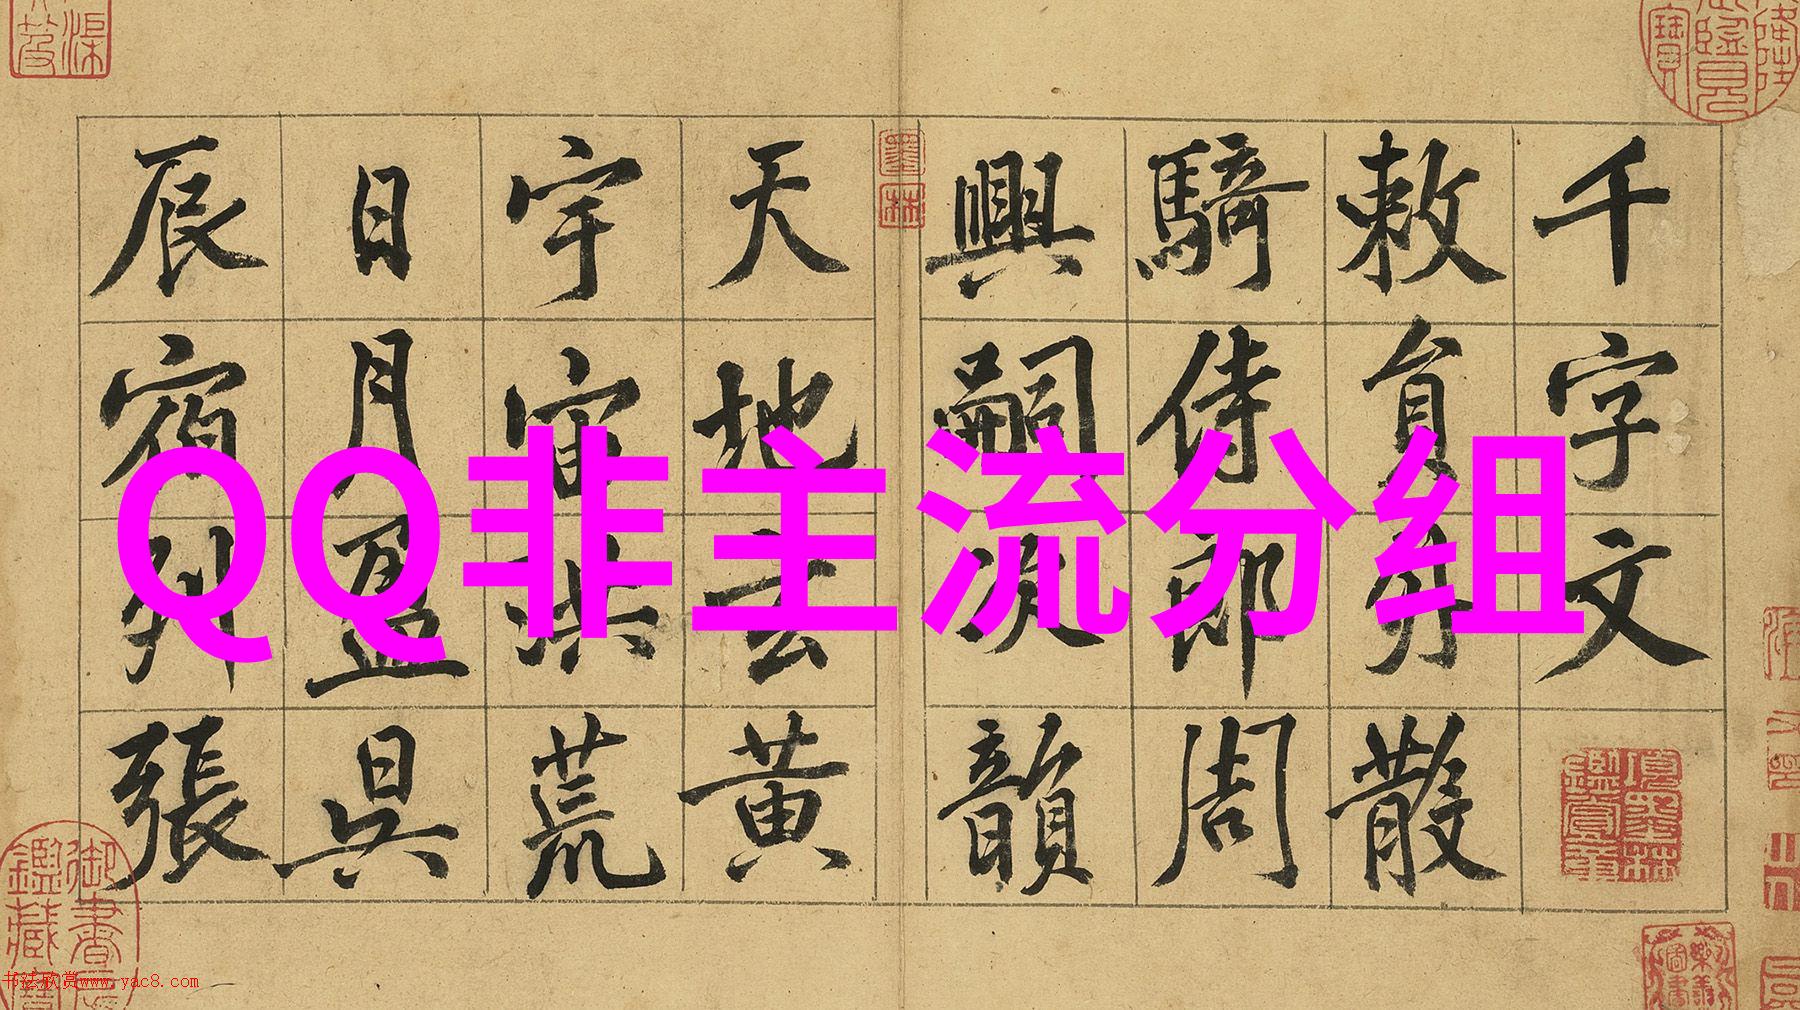 千字文
敕員外散
騎侍郎周
興嗣次韻
天地玄黄
宇宙洪荒
日月盈昃
辰宿列張
QQ非主流分组
书法欣赏www.yac8.com